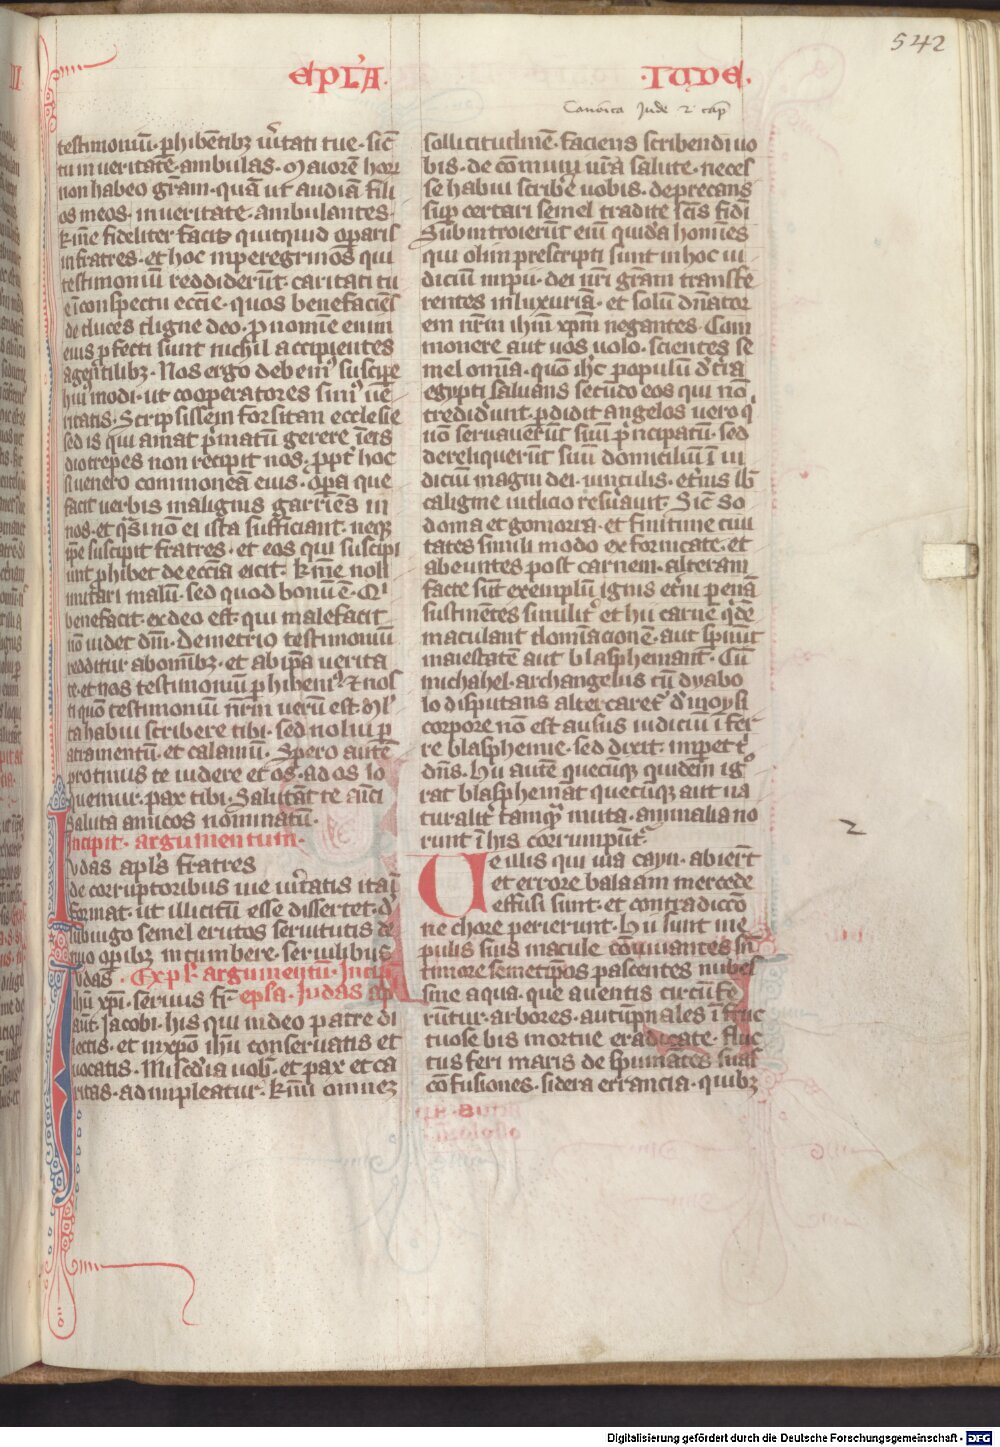 542
EPLA · IUDE ·
Canonica Jude 2 cap
testimoniū · phibētibꝫ ūitati tue · sic̄
tu in ueritate · ambulas · Maiorē horꝝ
non habeo grām · quā ut audiā fili
os meos · in ueritate · ambulantes ·
Kme fideliter facis quitquid oparis
in fratres · et hoc in peregrinos qui
testimoniū reddiderūt · caritati tu
e ī conspectu eccīe · quos benefaciēs
deduces digne deo · p nomīe enim
eius pfecti sunt nichil accipientes
a gentilibꝫ · Nos ergo debemꝰ suscipe
huiꝰmodi · ut cooperatores simꝰ ue
ritatis · Scripsissem forsitan ecclesie
sed is qui amat pmatū gerere ī eis
diotrepes non recipit nos · ppt hoc
si uenero commoneā eius · opa que
facit uerbis malignis garriēs in
nos · et qsi nō ei ista sufficiant · neqꝫ
ipe suscipit fratres · et eos qui suscipi
unt phibet de eccīa eicit · Kme noli
imitari malū · sed quod bonū ē · Qi
benefacit · ex deo est · qui malefacit
nō uidet dm̄ · Demetrio testimoniū
redditur ab omībꝫ · et ab ipa uerita
te · et nos testimoniū phibemꝰ · et nos
ti quō testimoniū nrm uerū est · Ml
ta habui scribere tibi · sed nolui p
atramentū · et calamū · Spero autē
protinus te uidere et os · ad os lo
quemur · pax tibi · Salutāt te amici
Saluta amicos nominatū ·
Incipit · argumentum ·
Iudas apls fratres
de corruptoribus uie ūitatis
format · ut illicitū esse dissertet · d
iubiugo semel erutos seruitutis de
nuo opibꝫ incumbere · seruilibus
Iudas · Expl argumentū · Incip
ihū xpi · seruus fr epsla · Iudas ap
aut Jacobi · his qui in deo patre di
lectis · et in xpō ihū conseruatis et
uocatis · Misedia uob · et pax et ca
ritas · adimpleatur · Kmi omnez
sollicitudinē · faciens scribendi uo
bis · de cōmuni ura salute · neces
se habui scribe uobis · deprecans
sup certari semel tradite scis fidi
Subintroierūt eni quida homines
qui olim prescripti sunt in hoc iu
diciū impii · dei nri grām transfe
rentes in luxuriā · et solū dnator
em nrm ihm xpm negantes · Com
monere aut uos uolo · scientes se
mel omīa · quō ihc populū d tra
egypti saluans secūdo eos qui nō
crediderunt · pdidit angelos uero q
nō seruauerūt suū pncipatū · sed
dereliquerūt suū domiciliū ī iu
diciū magni dei · uinculis · etnis sb
caligine iudicio resuauit · Sic so
doma et gomorra · et finitime ciui
tates simili modo exfornicate · et
abeuntes post carnem · alteram
facte sūt exemplū ignis etni penā
sustinētes similit · et hii carne qde
maculant dominacionē · aut spnut
maiestatē aut blasphemant · Cū
michahel · archangelus cū dyabo
lo disputans altercaret · d moysi
corpore nō est ausus iudiciū ī fer
re blasphemie · sed dixit · impet t
dns · Hii autē quecūqꝫ quidem ig
rat blasphemāt quecūqꝫ aut na
turalit tamqꝫ muta · animalia no
runt ī his corrumpūt ·
Ue illis qui uia cayn · abiert
et errore balaam mercede
effusi sunt · et contradiccō
ne chore perierunt · Hii sunt in e
pulis suis macule cōuiuantes sn
timore semetipos pascentes nubes
sine aqua · que a uentis circūfe
rūtur · arbores · autūpnales ī fruc
tuose bis mortue eradicate · fluc
tus feri maris despumātes suas
cōfusiones · sidera errancia · quibꝫ
2
Digitalisierung gefördert durch die Deutsche Forschungsgemeinschaft - DFG